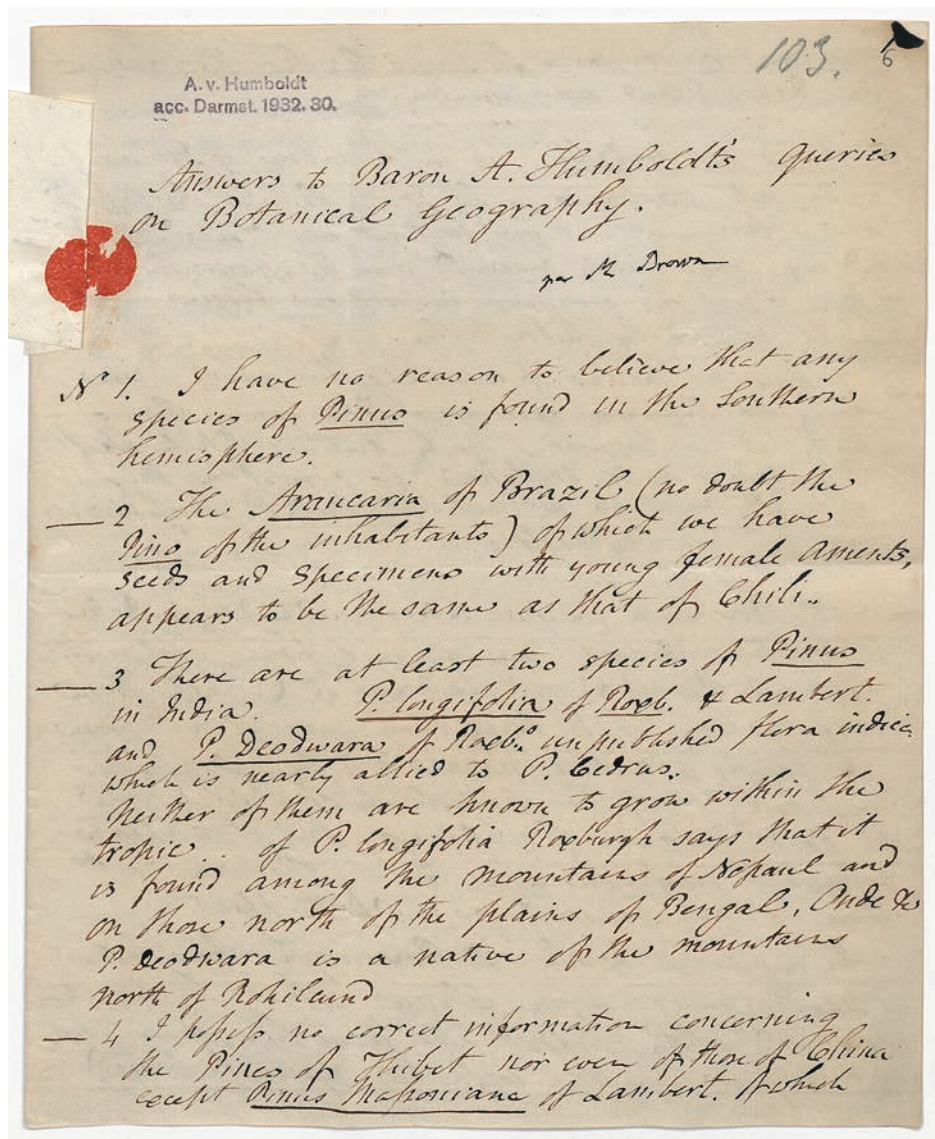 103.
6
A. v. Humboldt
acc. Darmst. 1932. 30.
Answers to Baron A. Humboldt's queries
on Botanical Geography.
par Mr Brown
No 1. I have no reason to believe that any
species of Pinus is found in the Southern
hemisphere.
— 2 The Araucaria of Brazil (no doubt the
Pino of the inhabitants) of which we have
seeds and specimens with young female aments,
appears to be the same as that of Chili..
— 3 There are at least two species of Pinus
in India. P. longifolia of Roxb. & Lambert.
and P. Deodwara of Roxb.o unpublished flora indica
which is nearly allied to P. Cedrus.
Neither of them are known to grow within the
tropic... of P. longifolia Roxburgh says that it
is found among the mountains of Nepaul and
on those north of the plains of Bengal, Oude &c
P. Deodwara is a native of the mountains
north of Rohilcund
— 4 I possess no correct information concerning
the Pines of Thibet nor even of those of China
except Pinus Massoniana of Lambert. of which